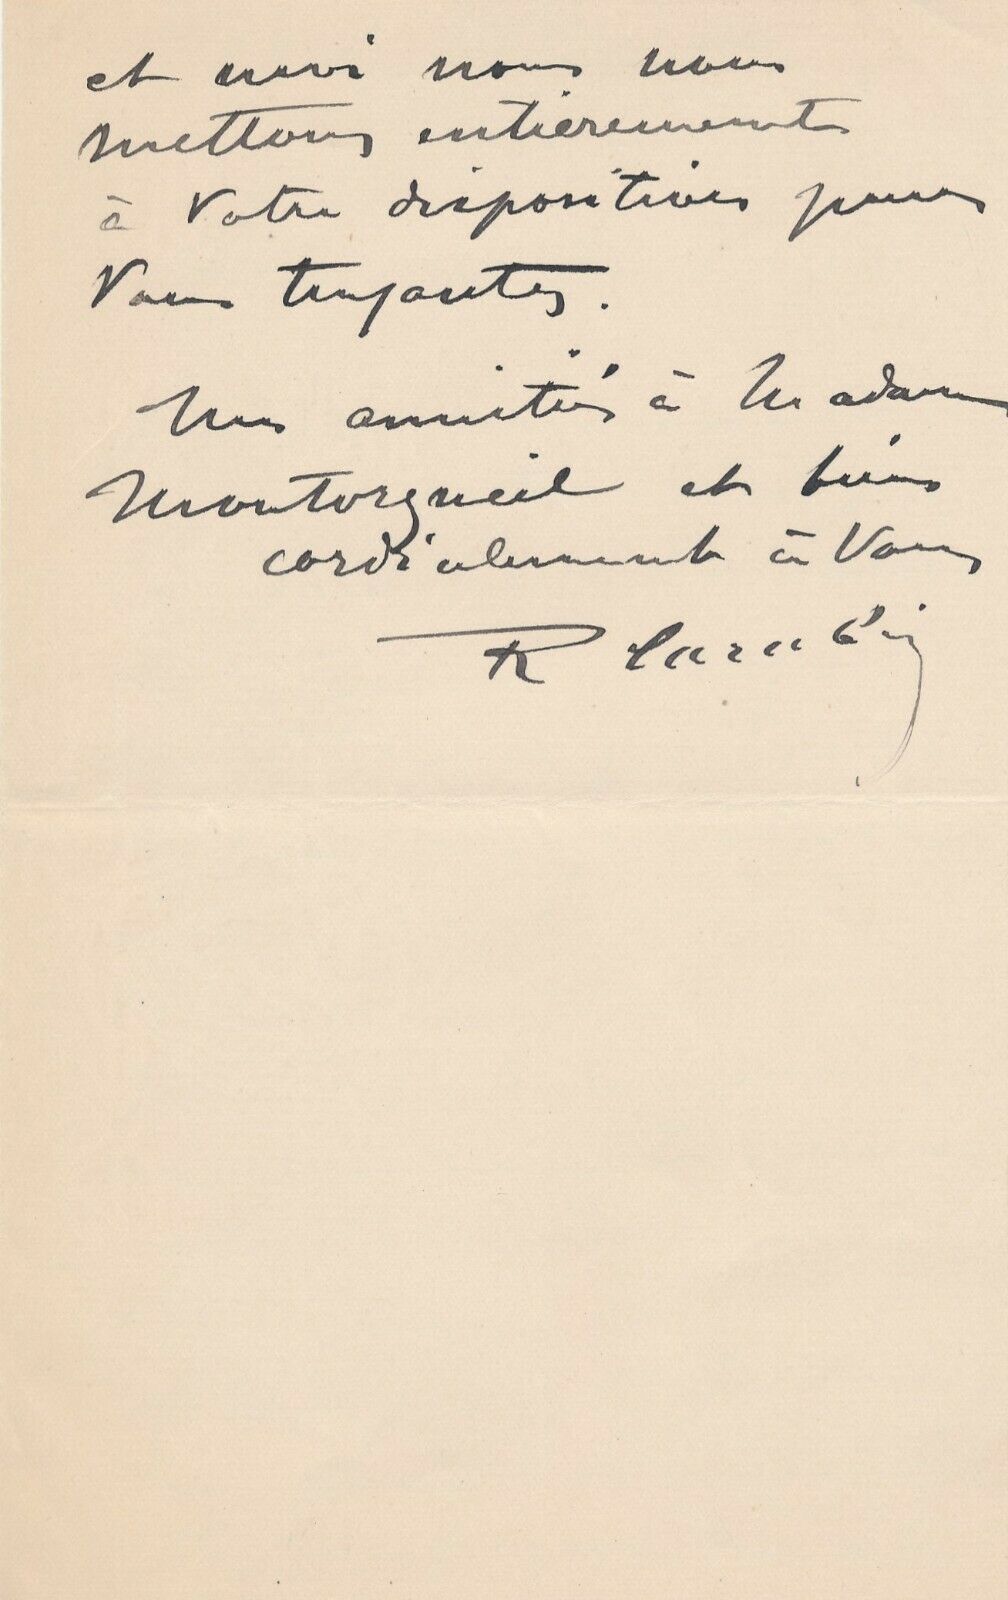 et moi nous nous
mettons entièrement
à Votre disposition pour
Vous
Nos amitiés à Madame
Montorgueil et bien
cordialement à Vous
R Carabin